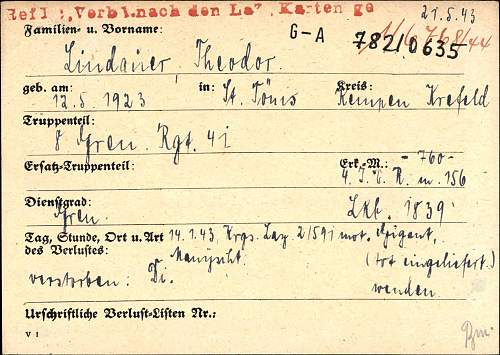 Refl:„Verbl.nach den Laz.Karten ge
21.5.43
Familien- u. Vorname: G-A 782/0635
Lindauer, Theodor.
geb. am: in: Kreis:
12.5.1923 St. Tönis Kempen Krefeld
Truppenteil:
8 Gren. Rgt. 41
Ersatz-Truppenteil: Erk.-M.: -760-
4. J. E. R. m. 156
Dienstgrad:
Gren. 1839
Tag, Stunde, Ort u. Art 14.1.43, Krgs. Laz. 2/591 mot.
des Verlustes:
verstorben: (tot eingeliefert.)
Urschriftliche Verlust-Listen Nr.:
V 1